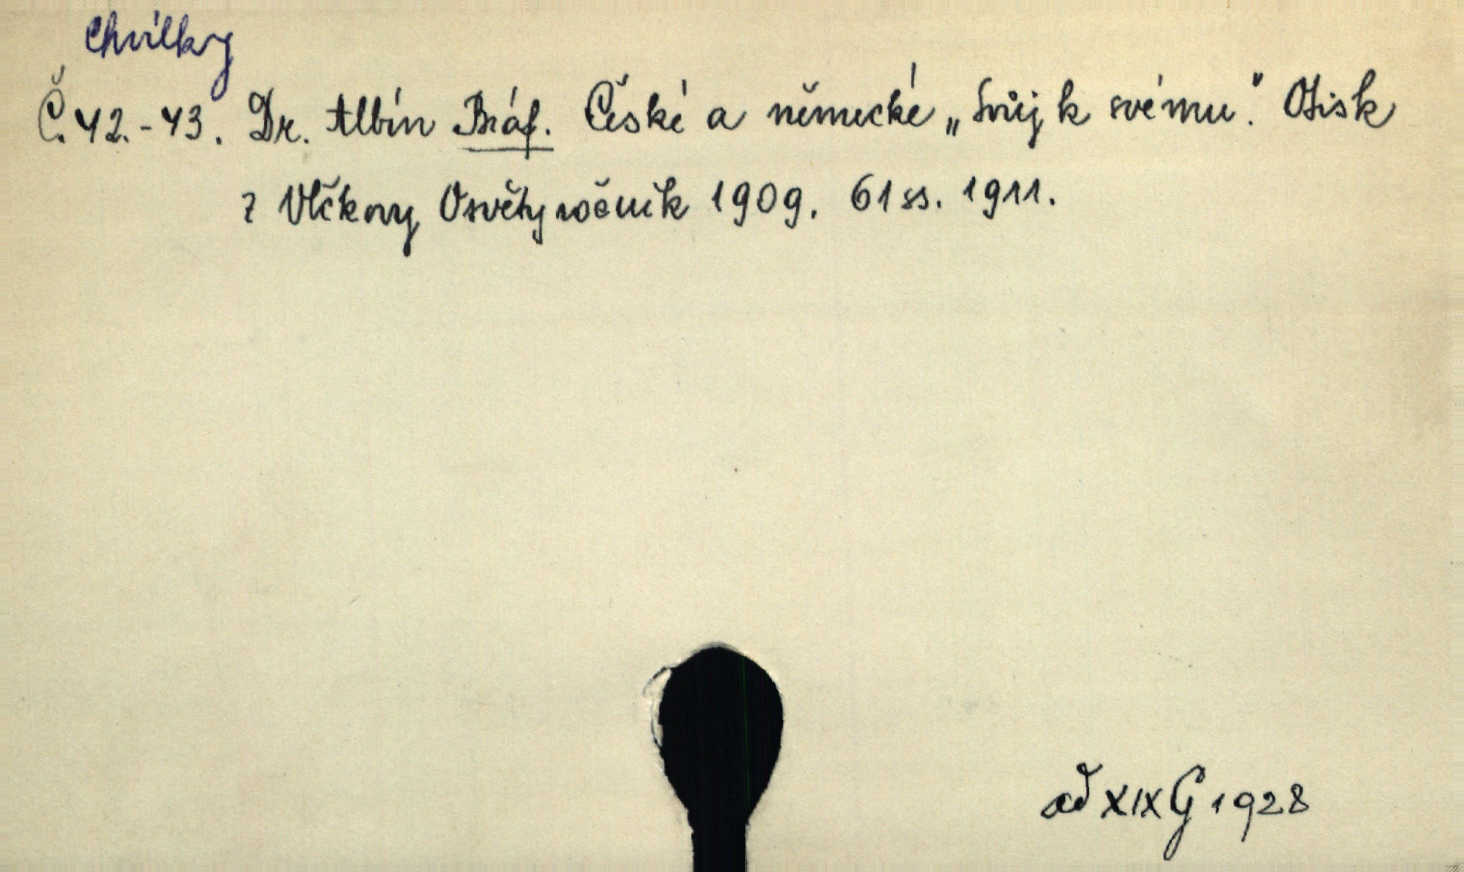 Chvilky
Č. 42.-43. Dr. Albín Bráf. České a německé „Svůj k svému." Otisk
z Vlčkovy Osvěty ročník 1909. 61 ss. 1911.
ad XIX G 1928